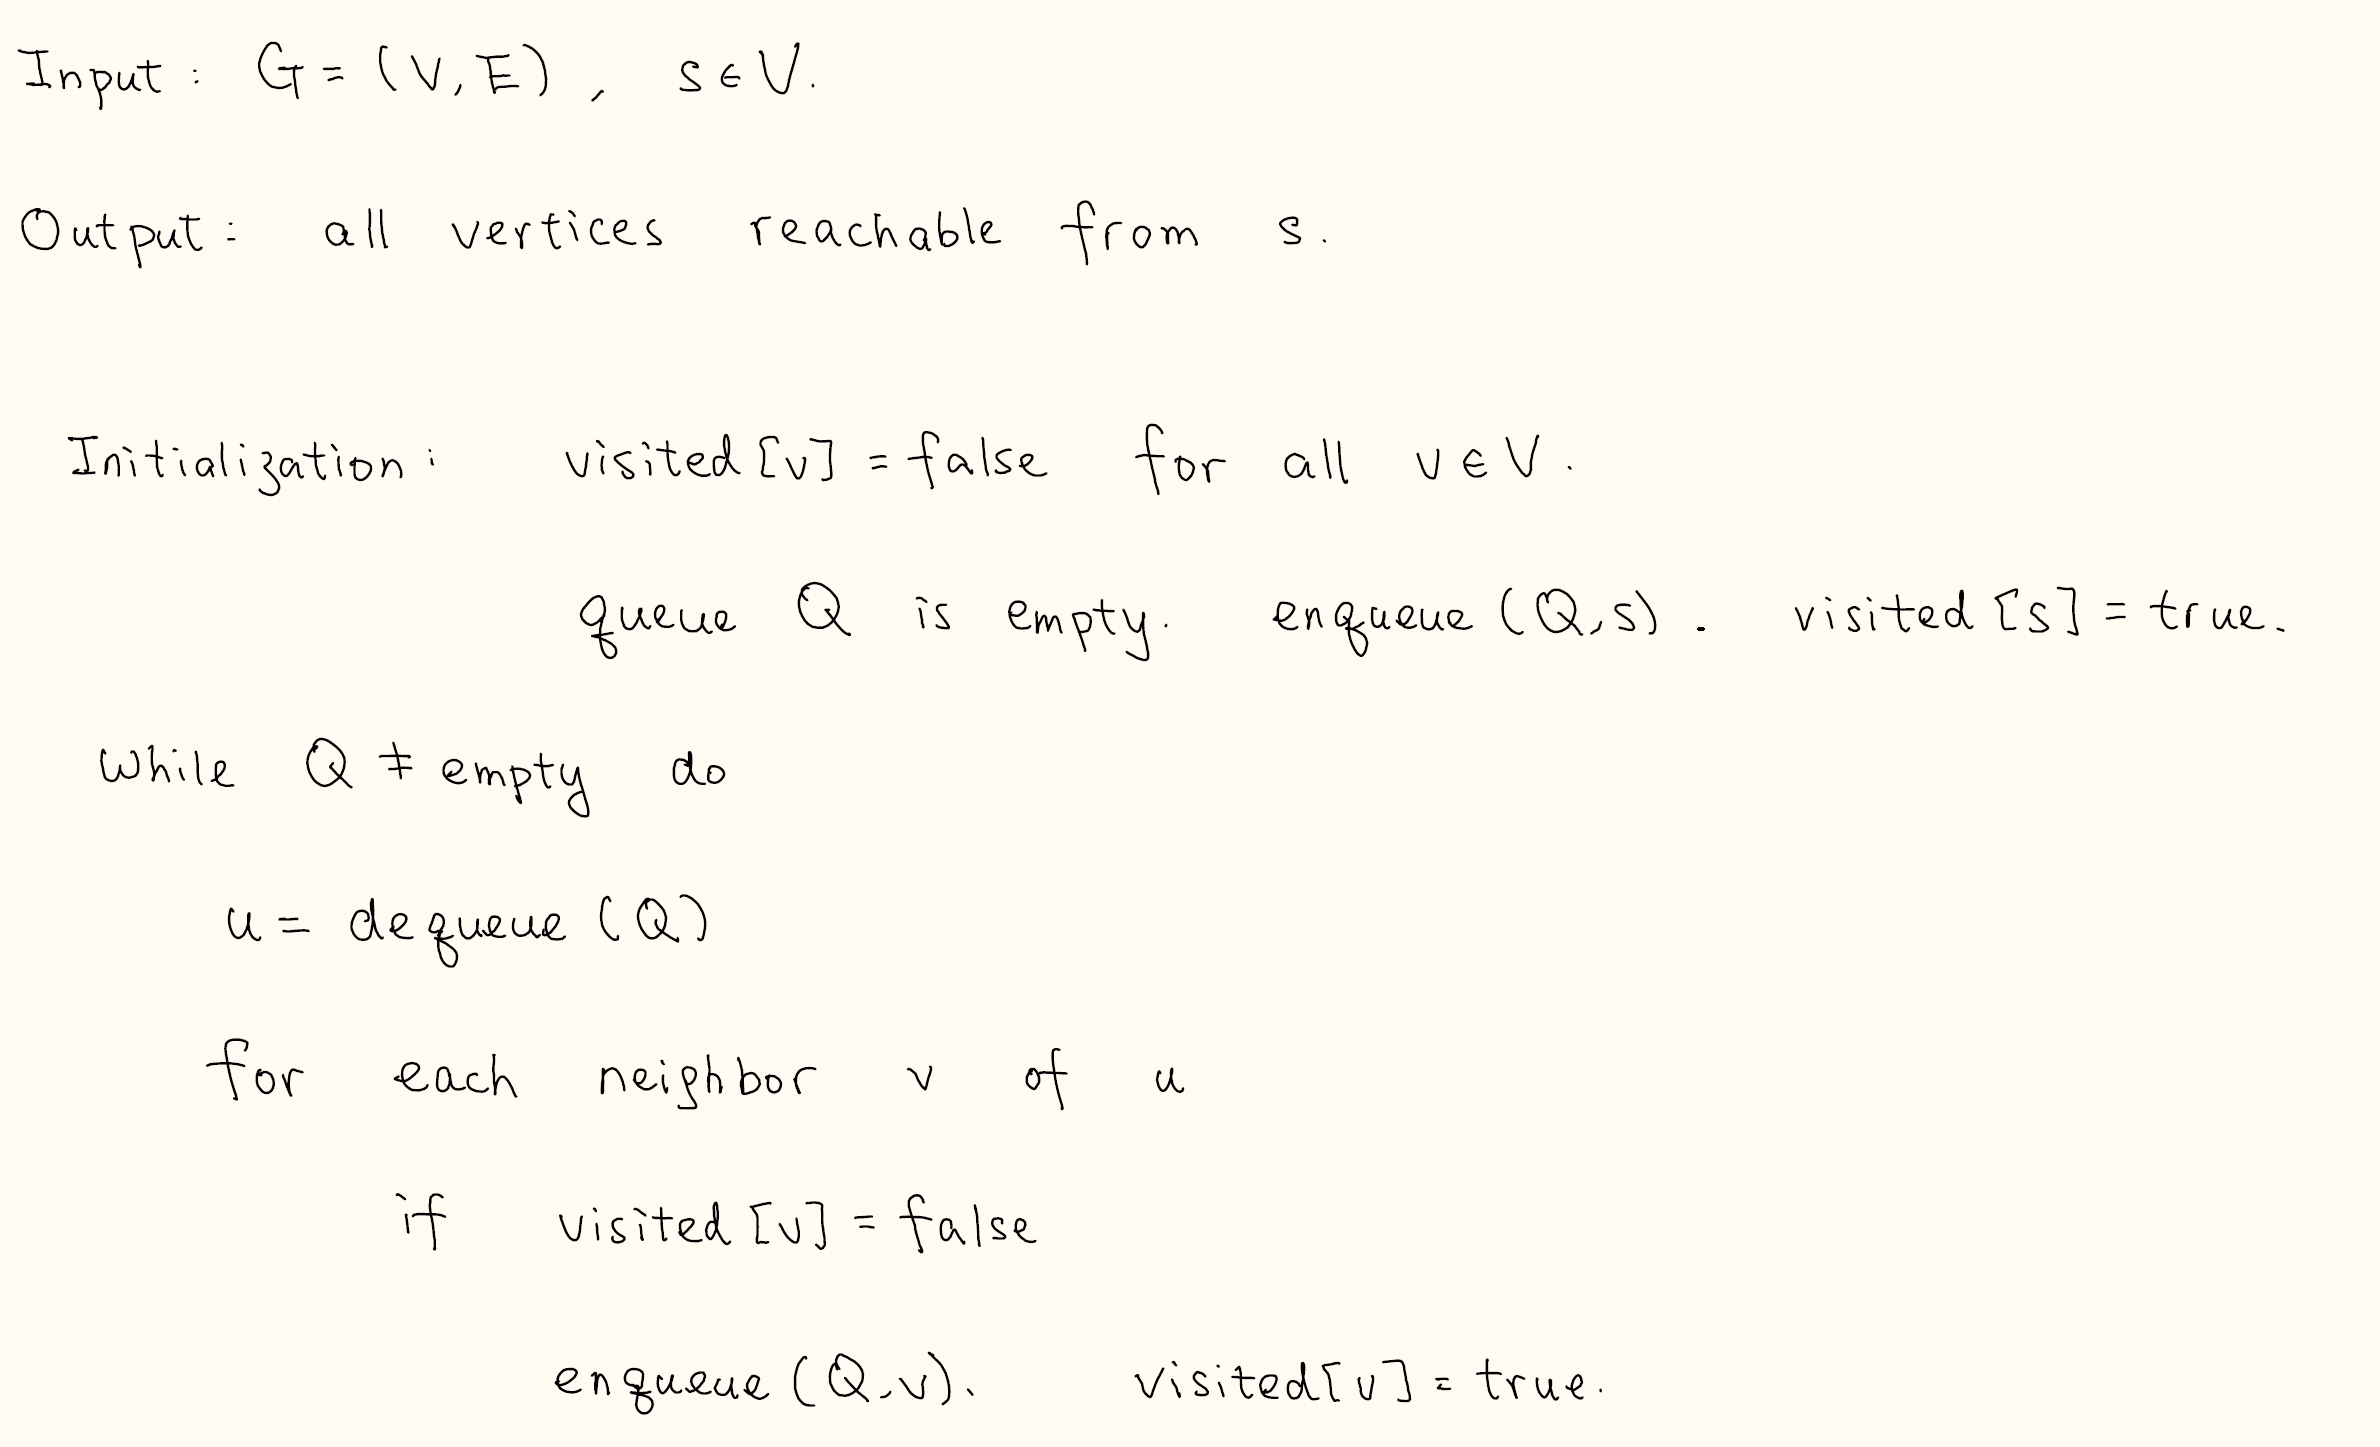 Input : G = (V, E) , s ∈ V.
Output : all vertices reachable from s.
Initialization : visited [v] = false for all v ∈ V.
queue Q is empty. enqueue (Q, s). visited [s] = true.
While Q ≠ empty do
u = dequeue (Q)
for each neighbor v of u
if visited [v] = false
enqueue (Q, v). visited [v] = true.